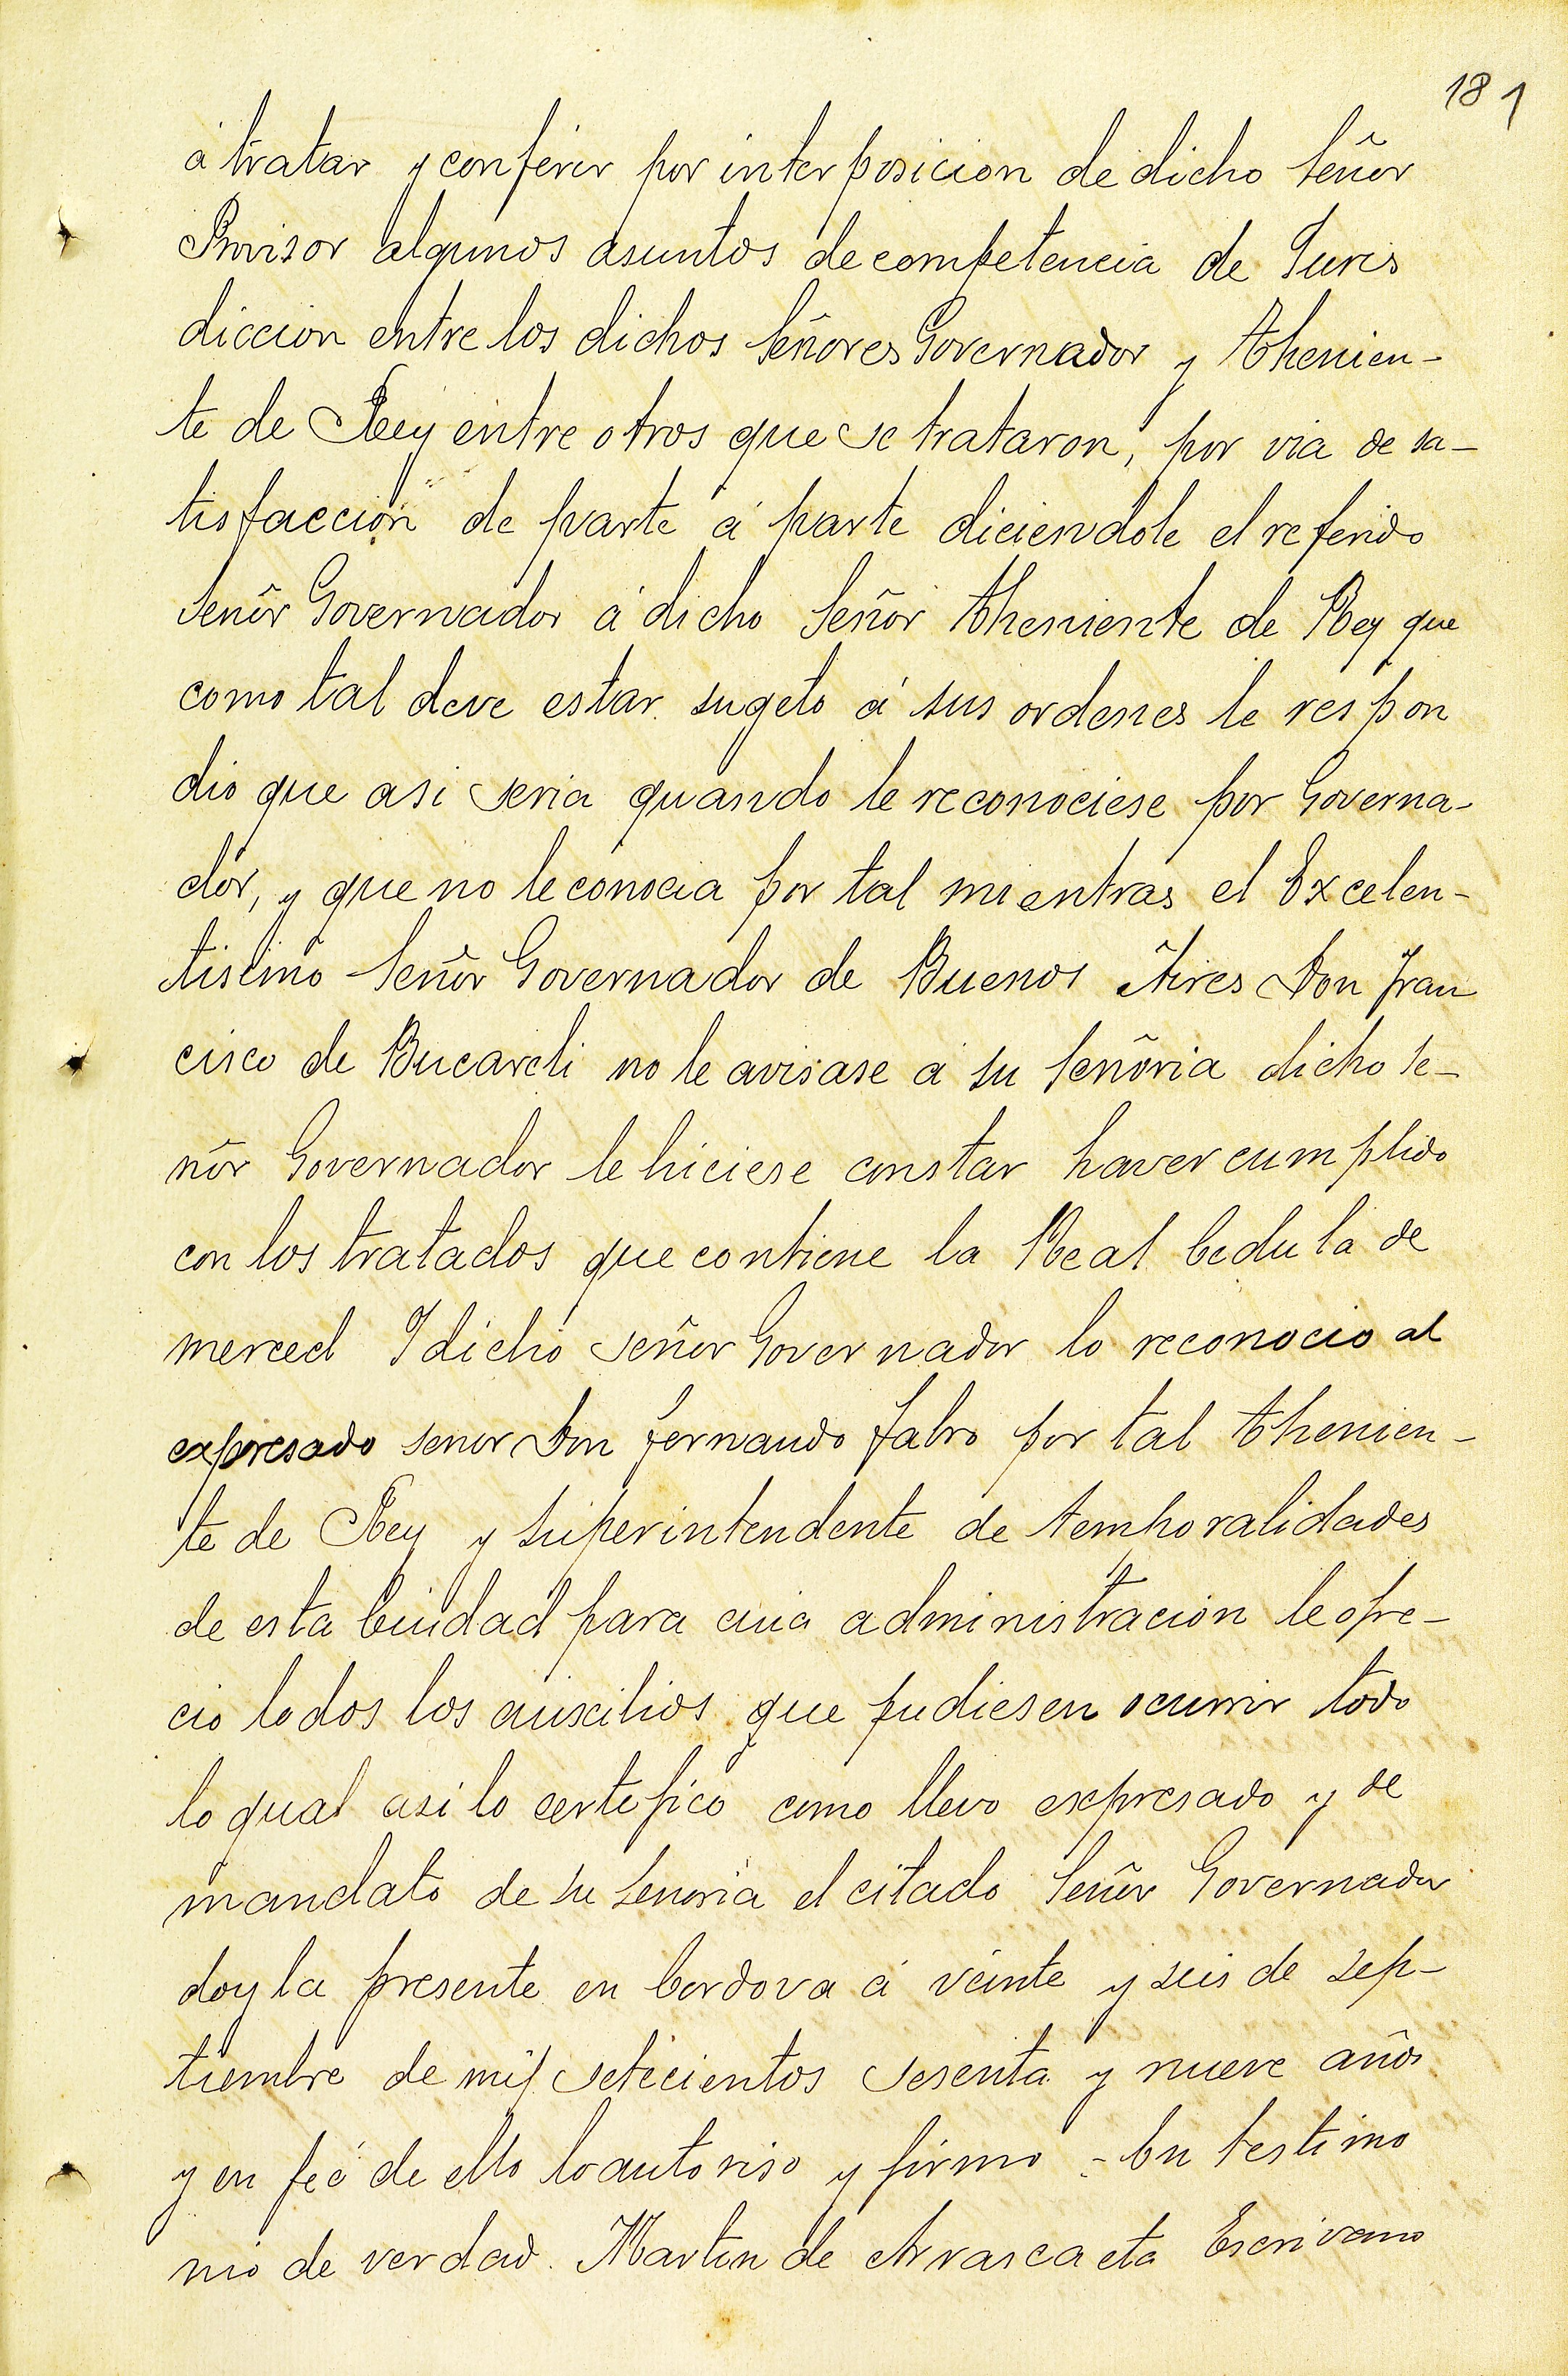 181
á tratar y conferir por interposicion de dicho Señor
Provisor algunos asuntos de competencia de Juris
diccion entre los dichos Señores Governador y Thenien-
te de Rey entre otros que se trataron, por via de sa-
tisfaccion de parte á parte diciendole el referido
Señor Governador á dicho Señor Theniente de Rey que
como tal deve estar sugeto á sus ordenes le respon
dio que asi seria quando le reconociese por Governa-
dor, y que no le conocia por tal mientras el Excelen-
tisimo Señor Governador de Buenos Aires Don Fran
cisco de Bucareli no le avisase á su Señoria dicho Se-
ñor Governador le hiciese constar haver cumplido
con los tratados que contiene la Real Cedula de
merced Y dicho Señor Governador lo reconocio al
expresado Senor Don Fernando Fabro por tal Thenien-
te de Rey y Superintendente de temporalidades
de esta Ciudad para cuia administracion le ofre-
cio todos los auxilios que pudiesen ocurrir todo
lo qual asi lo certefico como llevo expresado y de
mandato de su Senoria el citado Señor Governador
doy la presente en Cordova á veinte y seis de Sep-
tiembre de mil setecientos sesenta y nueve años
y en feé de ello lo autoriso y firmo - En testimo
nio de verdad. Martin de Arrascaeta Escrivano